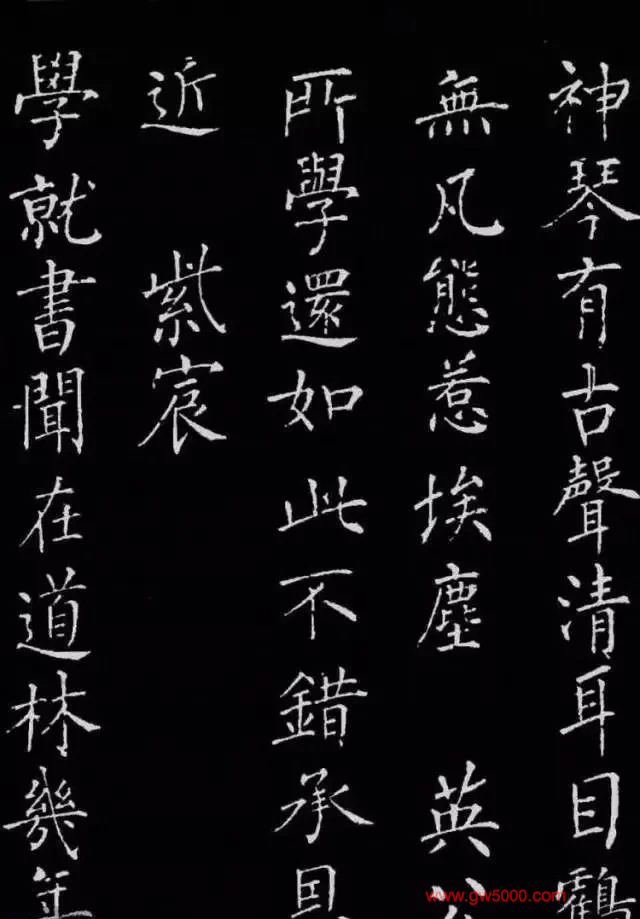 神琴有古聲清耳目鸖
無凡態惹埃塵 英公
所學還如此不錯承恩
近 紫宸
學就書聞在道林幾年
www.gw5000.com